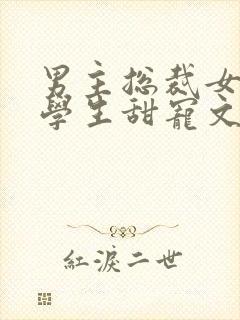 男主總裁女
學生甜寵文
紅淚二世